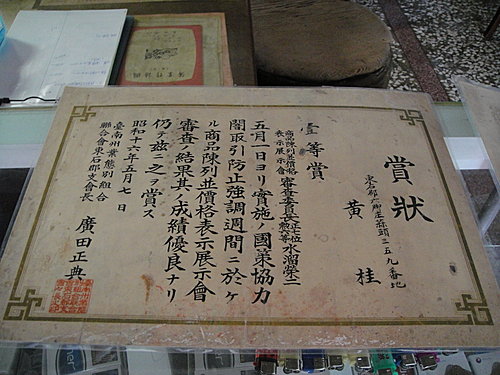 賞狀
東石郡六脚庄蒜頭二五九番地
黃 桂
壹等賞
商品陳列並價格表示展示會
審查委員長
水溜榮二
五月一日ヨリ實施ノ國策協力
闇取引防止強調週間ニ於ケ
ル商品陳列並價格表示展示會
審查ノ結果其ノ成績優良ナリ
仍テ茲ニ之ヲ賞ス
昭和十六年五月七日
臺南州業態別組合
聯合會東石郡支會長
廣田正典